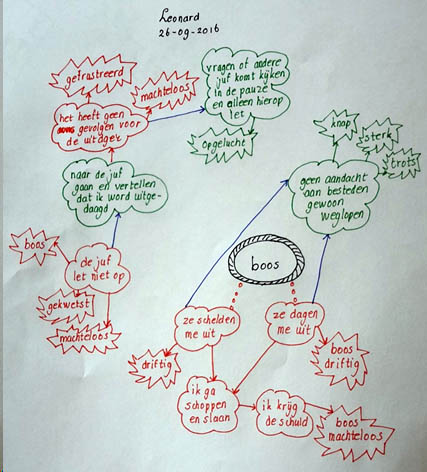 Leonard
26-09-2016
gefrustreerd
machteloos
het heeft geen
gevolgen voor
de uitdager
vragen of andere
juf komt kijken
in de pauze
en alleen hierop
let
opgelucht
knap
sterk
trots
naar de juf
gaan en vertellen
dat ik word uitge-
daagd
geen aandacht
aan besteden
gewoon
weglopen
boos
de juf
let niet op
gekwetst
machteloos
boos
ze schelden
me uit
ze dagen
me uit
driftig
boos
driftig
ik ga
schoppen
en slaan
ik krijg
de schuld
boos
machteloos